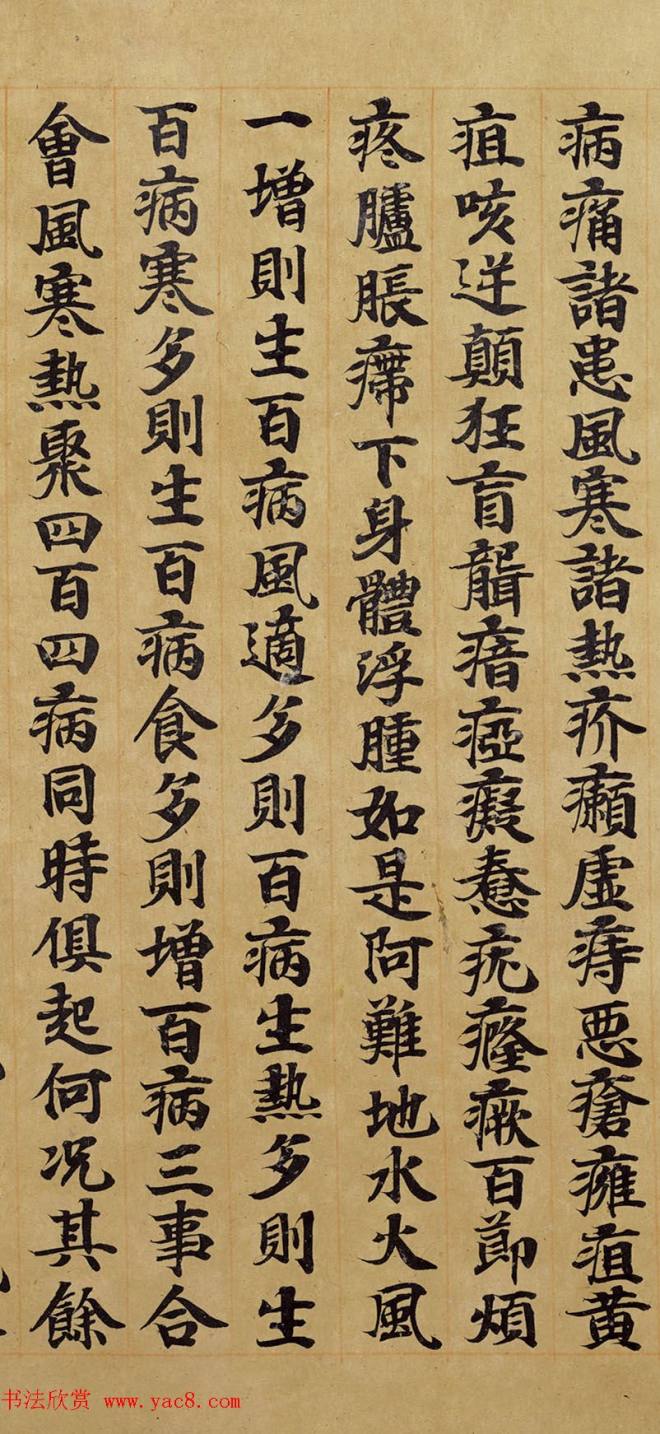 病痛諸患風寒諸熱疥癩虛痔惡瘡癰疽黃
疽咳逆顛狂盲聾瘖瘂癡惷疣癊瘶百節煩
疼臚脹㿃下身體浮腫如是阿難地水火風
一增則生百病風適多則百病生熱多則生
百病寒多則生百病食多則增百病三事合
會風寒熱聚四百四病同時俱起何況其餘
书法欣赏 www.yac8.com